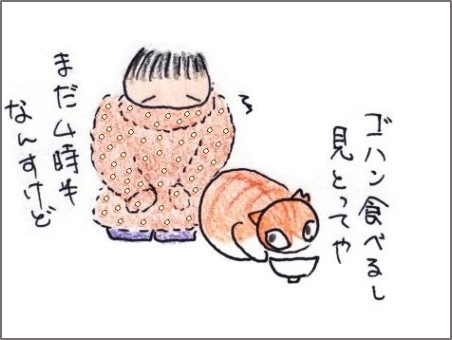 ゴハン食べるし
見とってや
まだ4時半
なんすけど